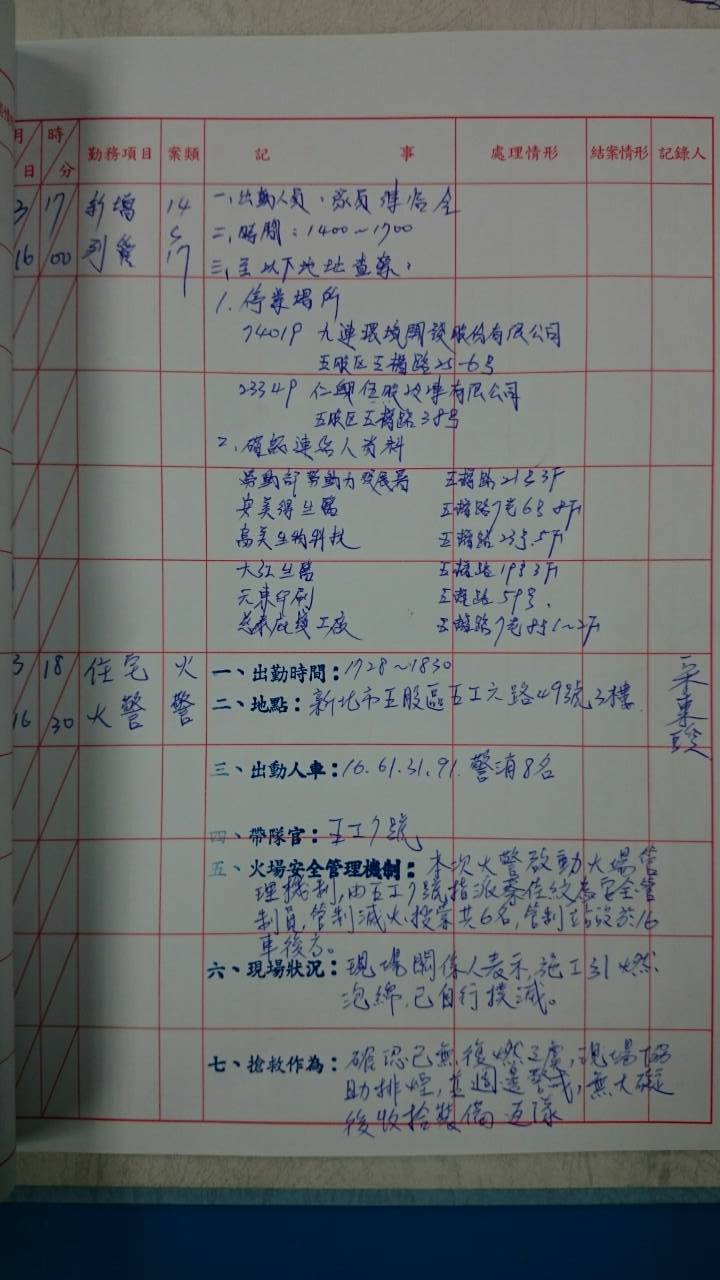 月 時
日 分 勤務項目 案類 記 事 處理情形 結案情形 記錄人
3 17 新增 14
16 00 列管 17
一、出勤人員:
二、時間:1400~1700
三、至以下地址查察:
1. 停業場所
74019 九連環境開發股份有限公司
五股区五權路25-6号
23349 有限公司
五股区五權路38号
2. 確認連絡人資料
勞動部勞動力發展署 五權路21号3F
安美得生醫 五權路7巷6号8F
高美生物科技 五權路23号5F
大江生醫 五權路19号3F
元東印刷 五權路59号
工廠 五權路7巷8号1~2F
3 18 住宅 火
16 30 火警 警
一、出勤時間:1728~1830
二、地點:新北市五股區五工六路49號3樓
三、出動人車:16.61.31.91.警消8名
四、帶隊官:五工7號
五、火場安全管理機制:本次火警啟動火場管
理機制,由五工7號指派蔡佳紋為安全管
制員,管制滅火、搜索共6名,管制站設於16
車後方。
六、現場狀況:現場關係人表示,施工引燃
泡綿,已自行撲滅。
七、搶救作為:確認已無復燃之虞,現場協
助排煙,並週邊警戒,無大礙
後收拾裝備返隊